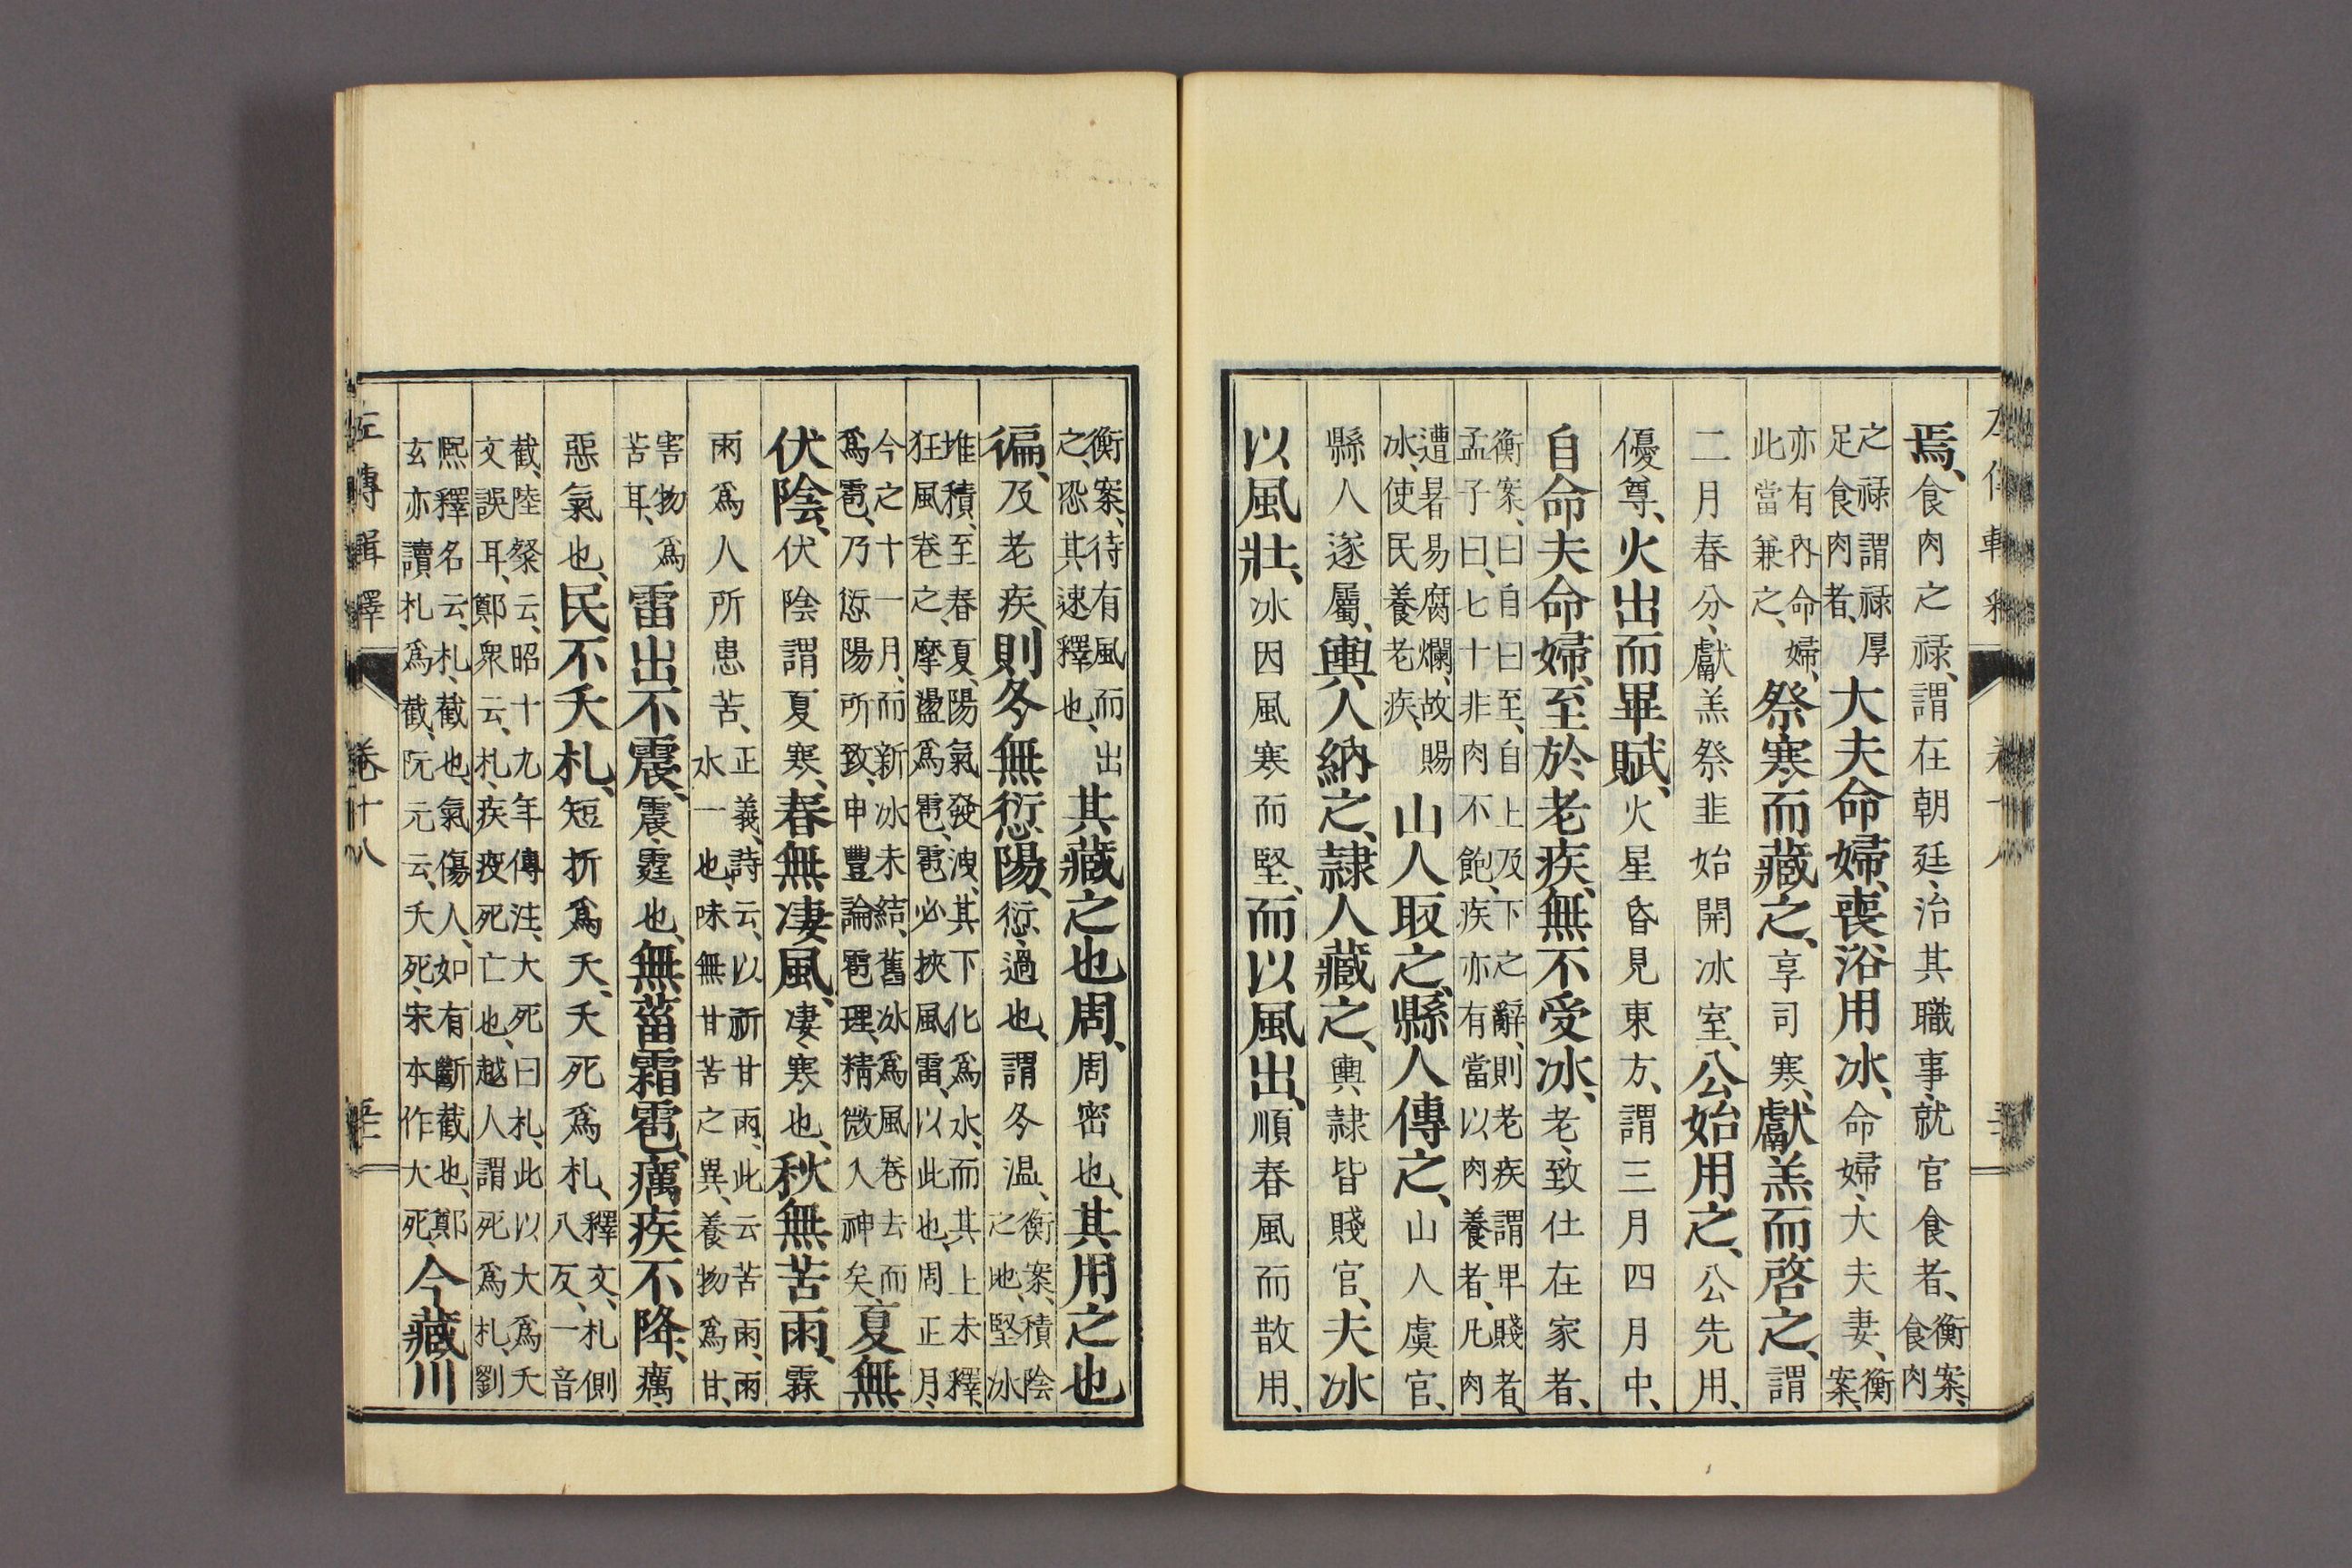 焉、食肉之禄、謂在朝廷、治其職事、就官食者、衡案、食肉
之禄謂禄厚足食肉者、大夫命婦、喪浴用冰、命婦、大夫妻、衡案、
亦有內命婦、此當兼之、祭寒而藏之、享司寒、獻羔而啓之、謂
二月春分、獻羔祭韭始開冰室、公始用之、公先用、
優尊、火出而畢賦、火星昏見東方、謂三月四月中、
自命夫命婦、至於老疾、無不受冰、老、致仕在家者、
衡案、曰自曰至、自上及下之辭、則老疾謂卑賤者、孟子曰、七十非肉不飽、疾亦有當以肉養者、凡肉
遭暑易腐爛、故賜冰、使民養老疾、山人取之、縣人傳之、山人虞官、
縣人遂屬、輿人納之、隷人藏之、輿隷皆賤官、夫冰
以風壯、冰因風寒而堅、而以風出、順春風而散用、
衡案、待有風而出之、恐其速釋也、其藏之也周、周密也、其用之也
徧、及老疾、則冬無愆陽、愆、過也、謂冬温、衡案、積陰之地、堅冰
堆積、至春夏、陽氣發洩、其下化爲水、而其上未釋、狂風卷之、摩盪爲雹、雹必挾風雷、以此也、周正月、
今之十一月、而新冰未結、舊冰爲風卷去而爲雹、乃愆陽所致、申豐論雹理、精微入神矣、夏無
伏陰、伏陰謂夏寒、春無凄風、凄、寒也、秋無苦雨、霖
雨爲人所患苦、正義、詩云、以祈甘雨、此云苦雨、雨水一也、味無甘苦之異、養物爲甘、
害物爲苦耳、雷出不震、震、霆也、無菑霜雹、癘疾不降、癘、
惡氣也、民不夭札、短折爲夭、夭死爲札、釋文、札側八反、一音
截、陸粲云、昭十九年傳注、大死曰札、此以大爲夭文誤耳、鄭衆云、札、疾疫死亡也、越人謂死爲札、劉
熙釋名云、札、截也、氣傷人、如有斷截也、鄭玄亦讀札爲截、阮元云、夭死、宋本作大死、今藏川
左傳輯釋　卷十八